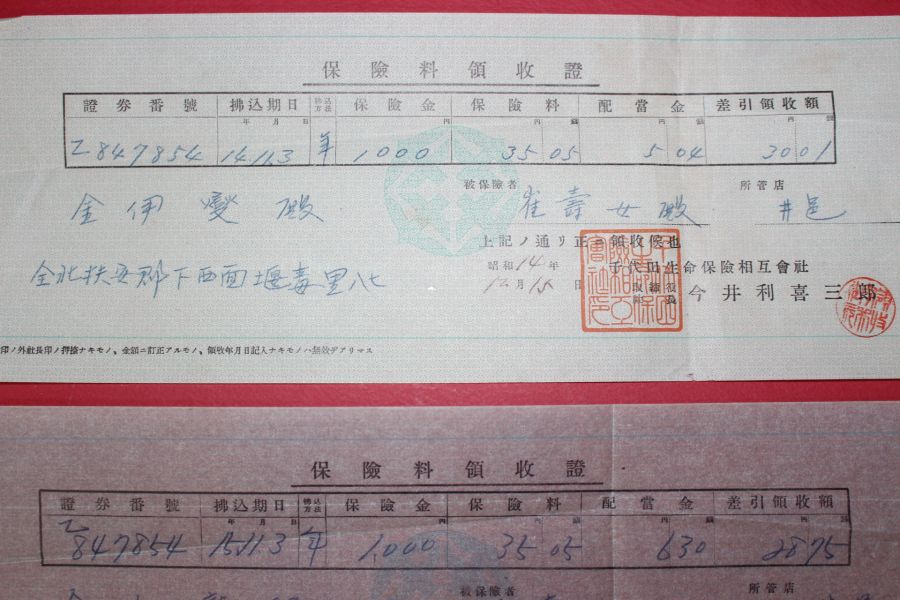 保險料領收證
證券番號 拂込期日 拂込方法 保險金 保險料 配當金 差引領收額
年 月 日 円 円 錢 円 錢 円 錢
乙847854 14 11 3 年 1000 35 05 5 04 30 01
被保險者 所管店
金伊變殿 崔壽女殿 井邑
上記ノ通リ正ニ領收候也
昭和14年 千代田生命保險相互會社
全北扶安郡下西面堰毒里八七
12月 日 取締役社長 今井利喜三郎
印ノ外社長印ノ押捺ナキモノ、金額ニ訂正アルモノ、領收年月日記入ナキモノハ無效デアリマス
保險料領收證
證券番號 拂込期日 拂込方法 保險金 保險料 配當金 差引領收額
年 月 日 円 円 錢 円 錢 円 錢
乙847854 15 11 3 年 1,000 35 05 6 30 28 75
被保險者 所管店